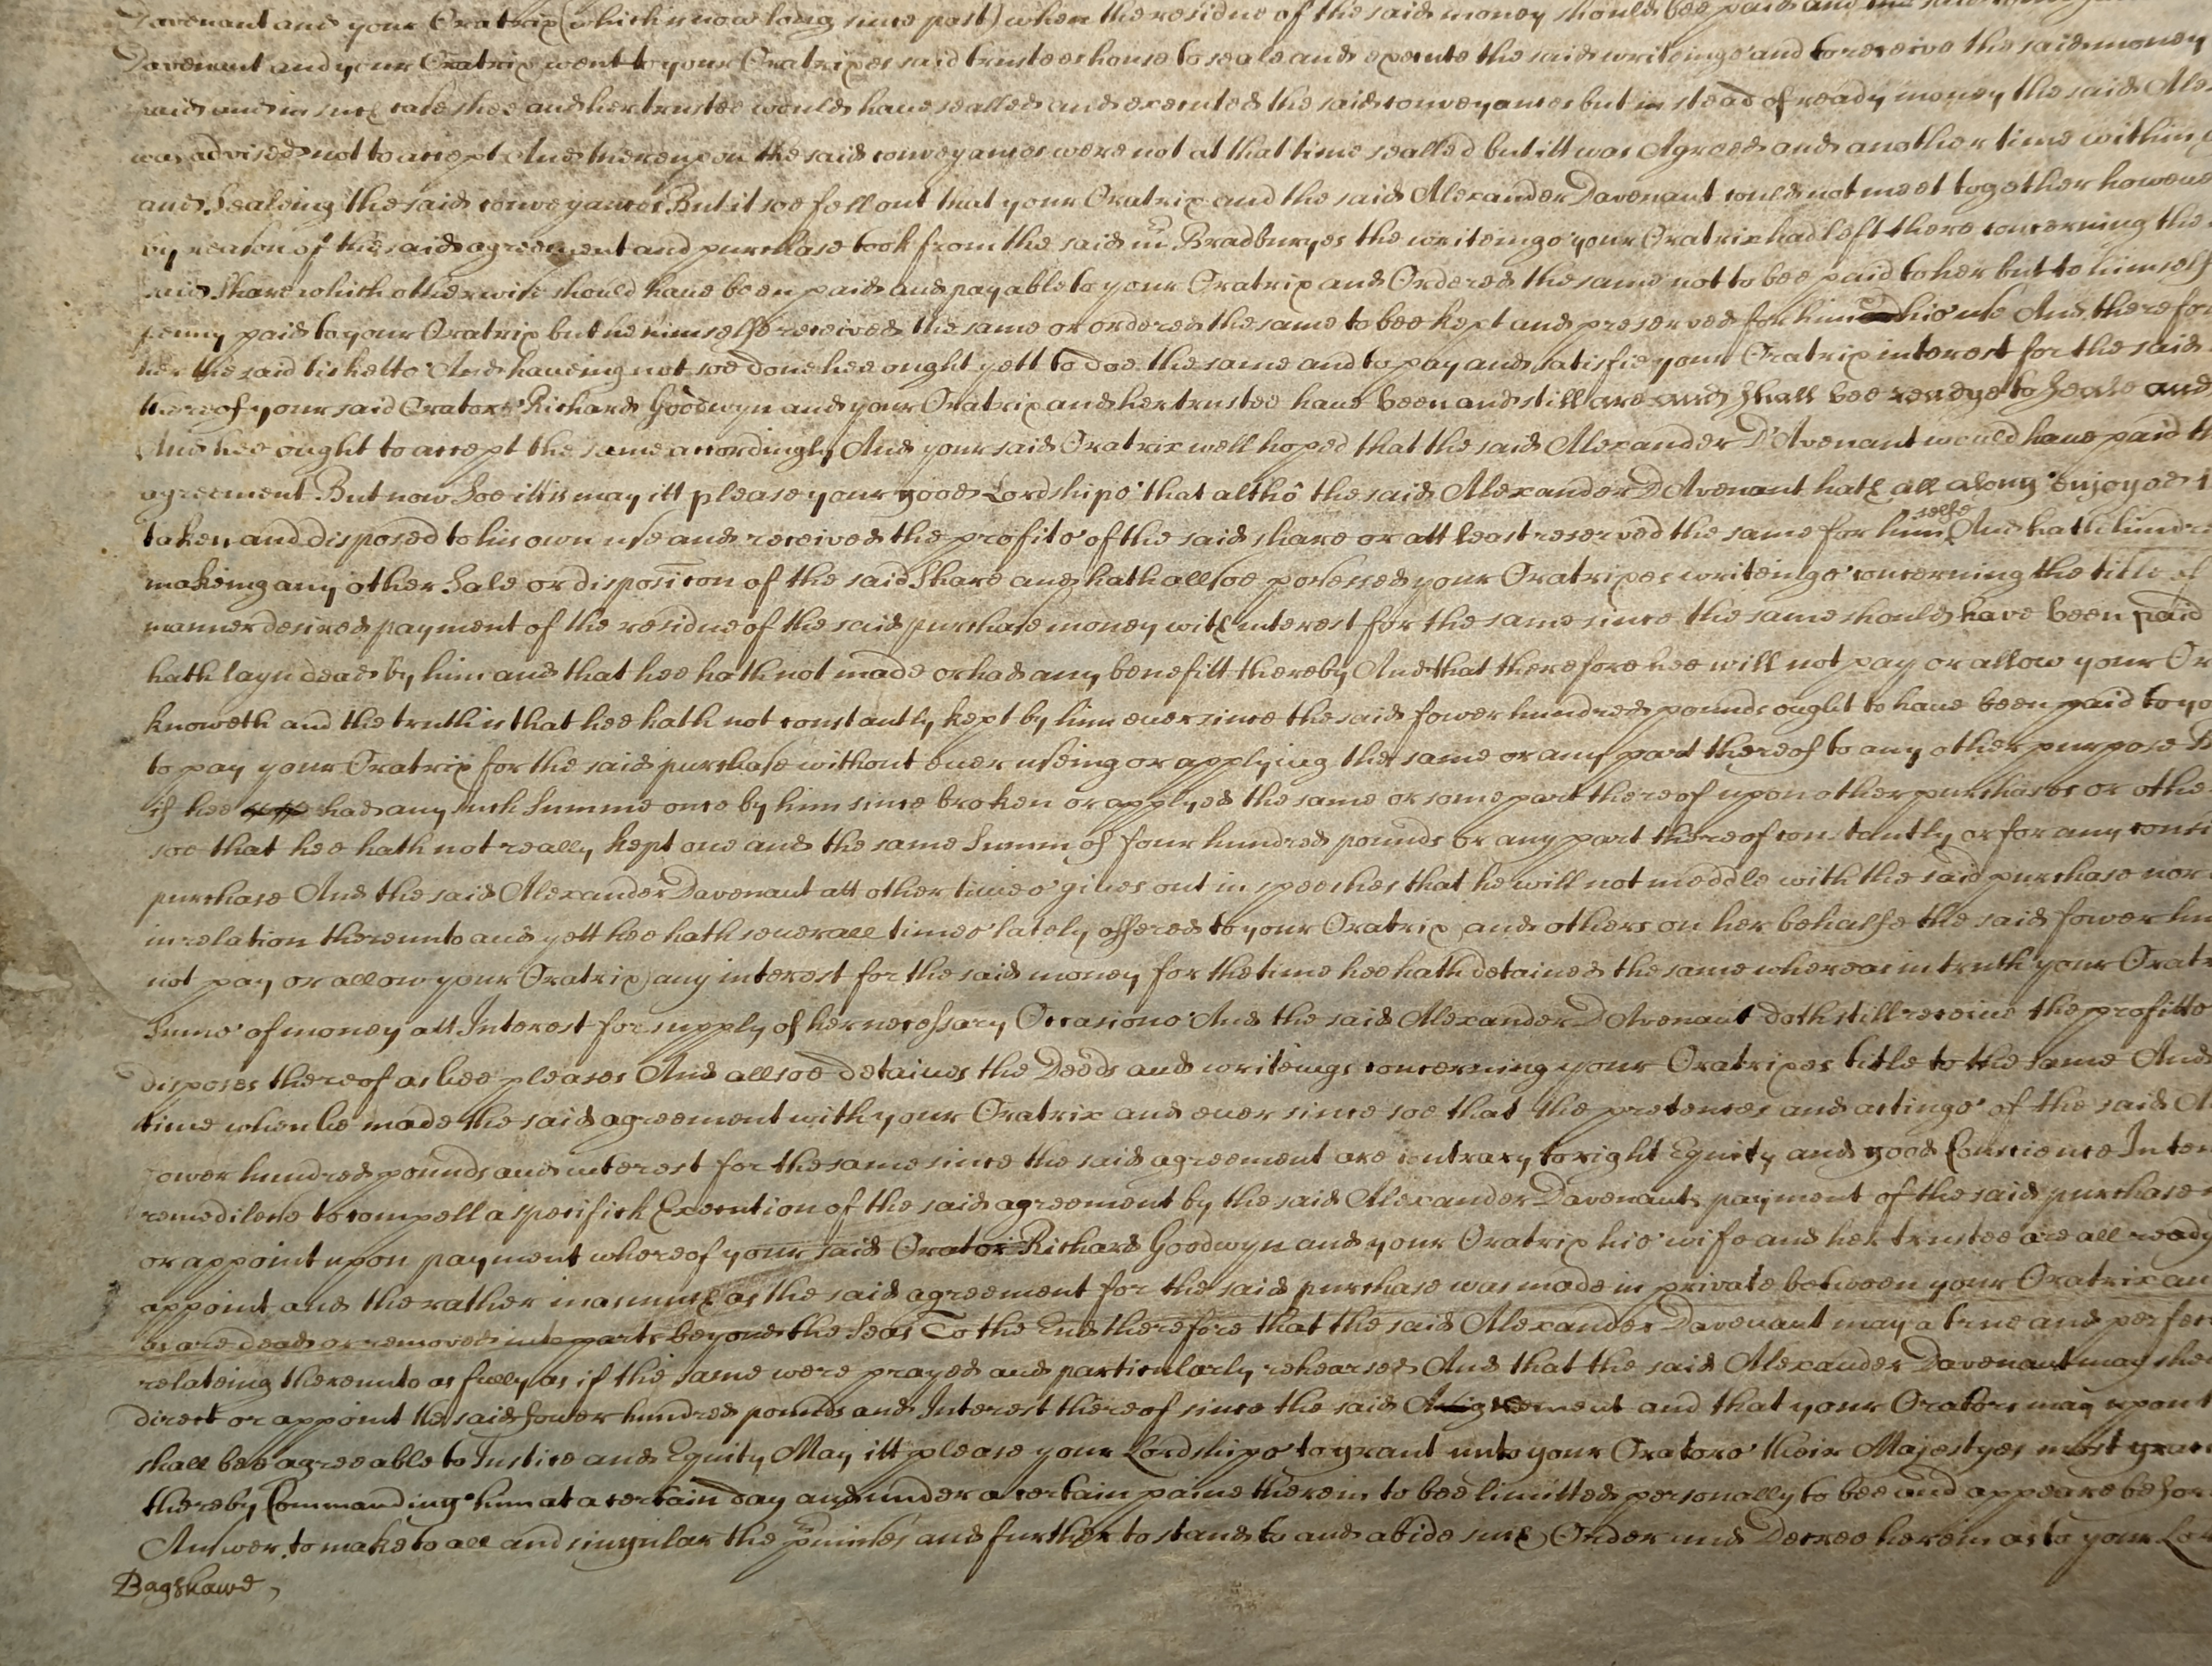 Davenant and your Oratrix (which is now long since past) when the residue of the said money should bee paid and the said
Davenant and your Oratrix went to your Oratrixes said trustees house to seale and execute the said writeings and to receive the said money
paid and in such case shee and her trustee would have sealled and executed the said conveyances but in stead of ready money the said Alex
was advised not to accept And thereupon the said conveyances were not at that time sealled but itt was Agreed and another time within
and Sealeing the said conveyances But it soe fell out that your Oratrix and the said Alexander Davenant could not meet together howeve
by reason of the said agreement and purchase took from the said mr Bradburyes the writeings your Oratrix had left there concerning the
said Share which otherwise should have been paid and payable to your Oratrix and Ordered the same not to bee paid to her but to himself
penny paid to your Oratrix but he himselfe received the same or ordered the same to bee kept and preserved for him and his use And therefor
her the said ticketts And haveing not soe done hee ought yett to doe the same and to pay and satisfie your Oratrix interest for the said
thereof your said Orator Richard Goodwyn and your Oratrix and her trustee have been and still are and shall bee readye to Seale and
And hee ought to accept the same accordingly And your said Oratrix well hoped that the said Alexander D'Avenant would have paid th
agreement But now Soe itt is may itt please your good Lordshipps that altho the said Alexander DAvenant hath all along enjoyed t
taken and disposed to his own use and received the profits of the said share or att least reserved the same for him selfe And hath hindre
makeing any other Sale or disposicon of the said Share and hath allsoe possessed your Oratrixes writeings concerning the title of
manner desired payment of the residue of the said purchase money with interest for the same since the same should have been paid
hath layn dead by him and that hee hath not made or had any benefitt thereby And that therefore hee will not pay or allow your Or
knoweth and the truth is that hee hath not constantly kept by him ever since the said fower hundred pounds ought to have been paid to yo
to pay your Oratrix for the said purchase without ever useing or applying the same or any part thereof to any other purpose B
if hee had any such Summe once by him since broken or applyed the same or some part thereof upon other purchases or othe
soe that hee hath not really kept one and the same Summ of four hundred pounds or any part thereof constantly or for any consi
purchase And the said Alexander Davenant att other times gives out in speeches that he will not meddle with the said purchase nor
in relation thereunto and yett hee hath severall times lately offered to your Oratrix and others on her behalfe the said fower hun
not pay or allow your Oratrix any interest for the said money for the time hee hath detained the same whereas in truth your Oratr
Sums of money att Interest for supply of her necessary Occasions And the said Alexander DAvenant doth still receive the profitts
disposes thereof as hee pleases And allsoe detaines the Deeds and writeings concerning your Oratrixes title to the same And
time when he made the said agreement with your Oratrix and ever since soe that the pretences and actings of the said Al
fower hundred pounds and interest for the same since the said agreement are contrary to right Equity and good Conscience In ten
remedilesse to compell a specifick Execution of the said agreement by the said Alexander Davenants payment of the said purchase
or appoint upon payment whereof your said Orator Richard Goodwyn and your Oratrix his wife and her trustee are all ready
appoint and the rather inasmuch as the said agreement for the said purchase was made in private between your Oratrix an
as are dead or removed into parts beyond the Seas To the End therefore that the said Alexander Davenant may a true and perfec
relateing thereunto as fully as if the same were prayed and particularly rehearsed And that the said Alexander Davenant may shew
direct or appoint the said fower hundred pounds and Interest thereof since the said Agreement and that your Orators may upon t
shall bee agreeable to Justice and Equity May itt please your Lordshipps to grant unto your Orators their Majestyes most grac
thereby Commanding him at a certain day and under a certain paine therein to bee limitted personally to bee and appeare befor
Answer to make to all and singular the pmisses and further to stand to and abide such Order and Decree herein as to your Lor
Bagshawe